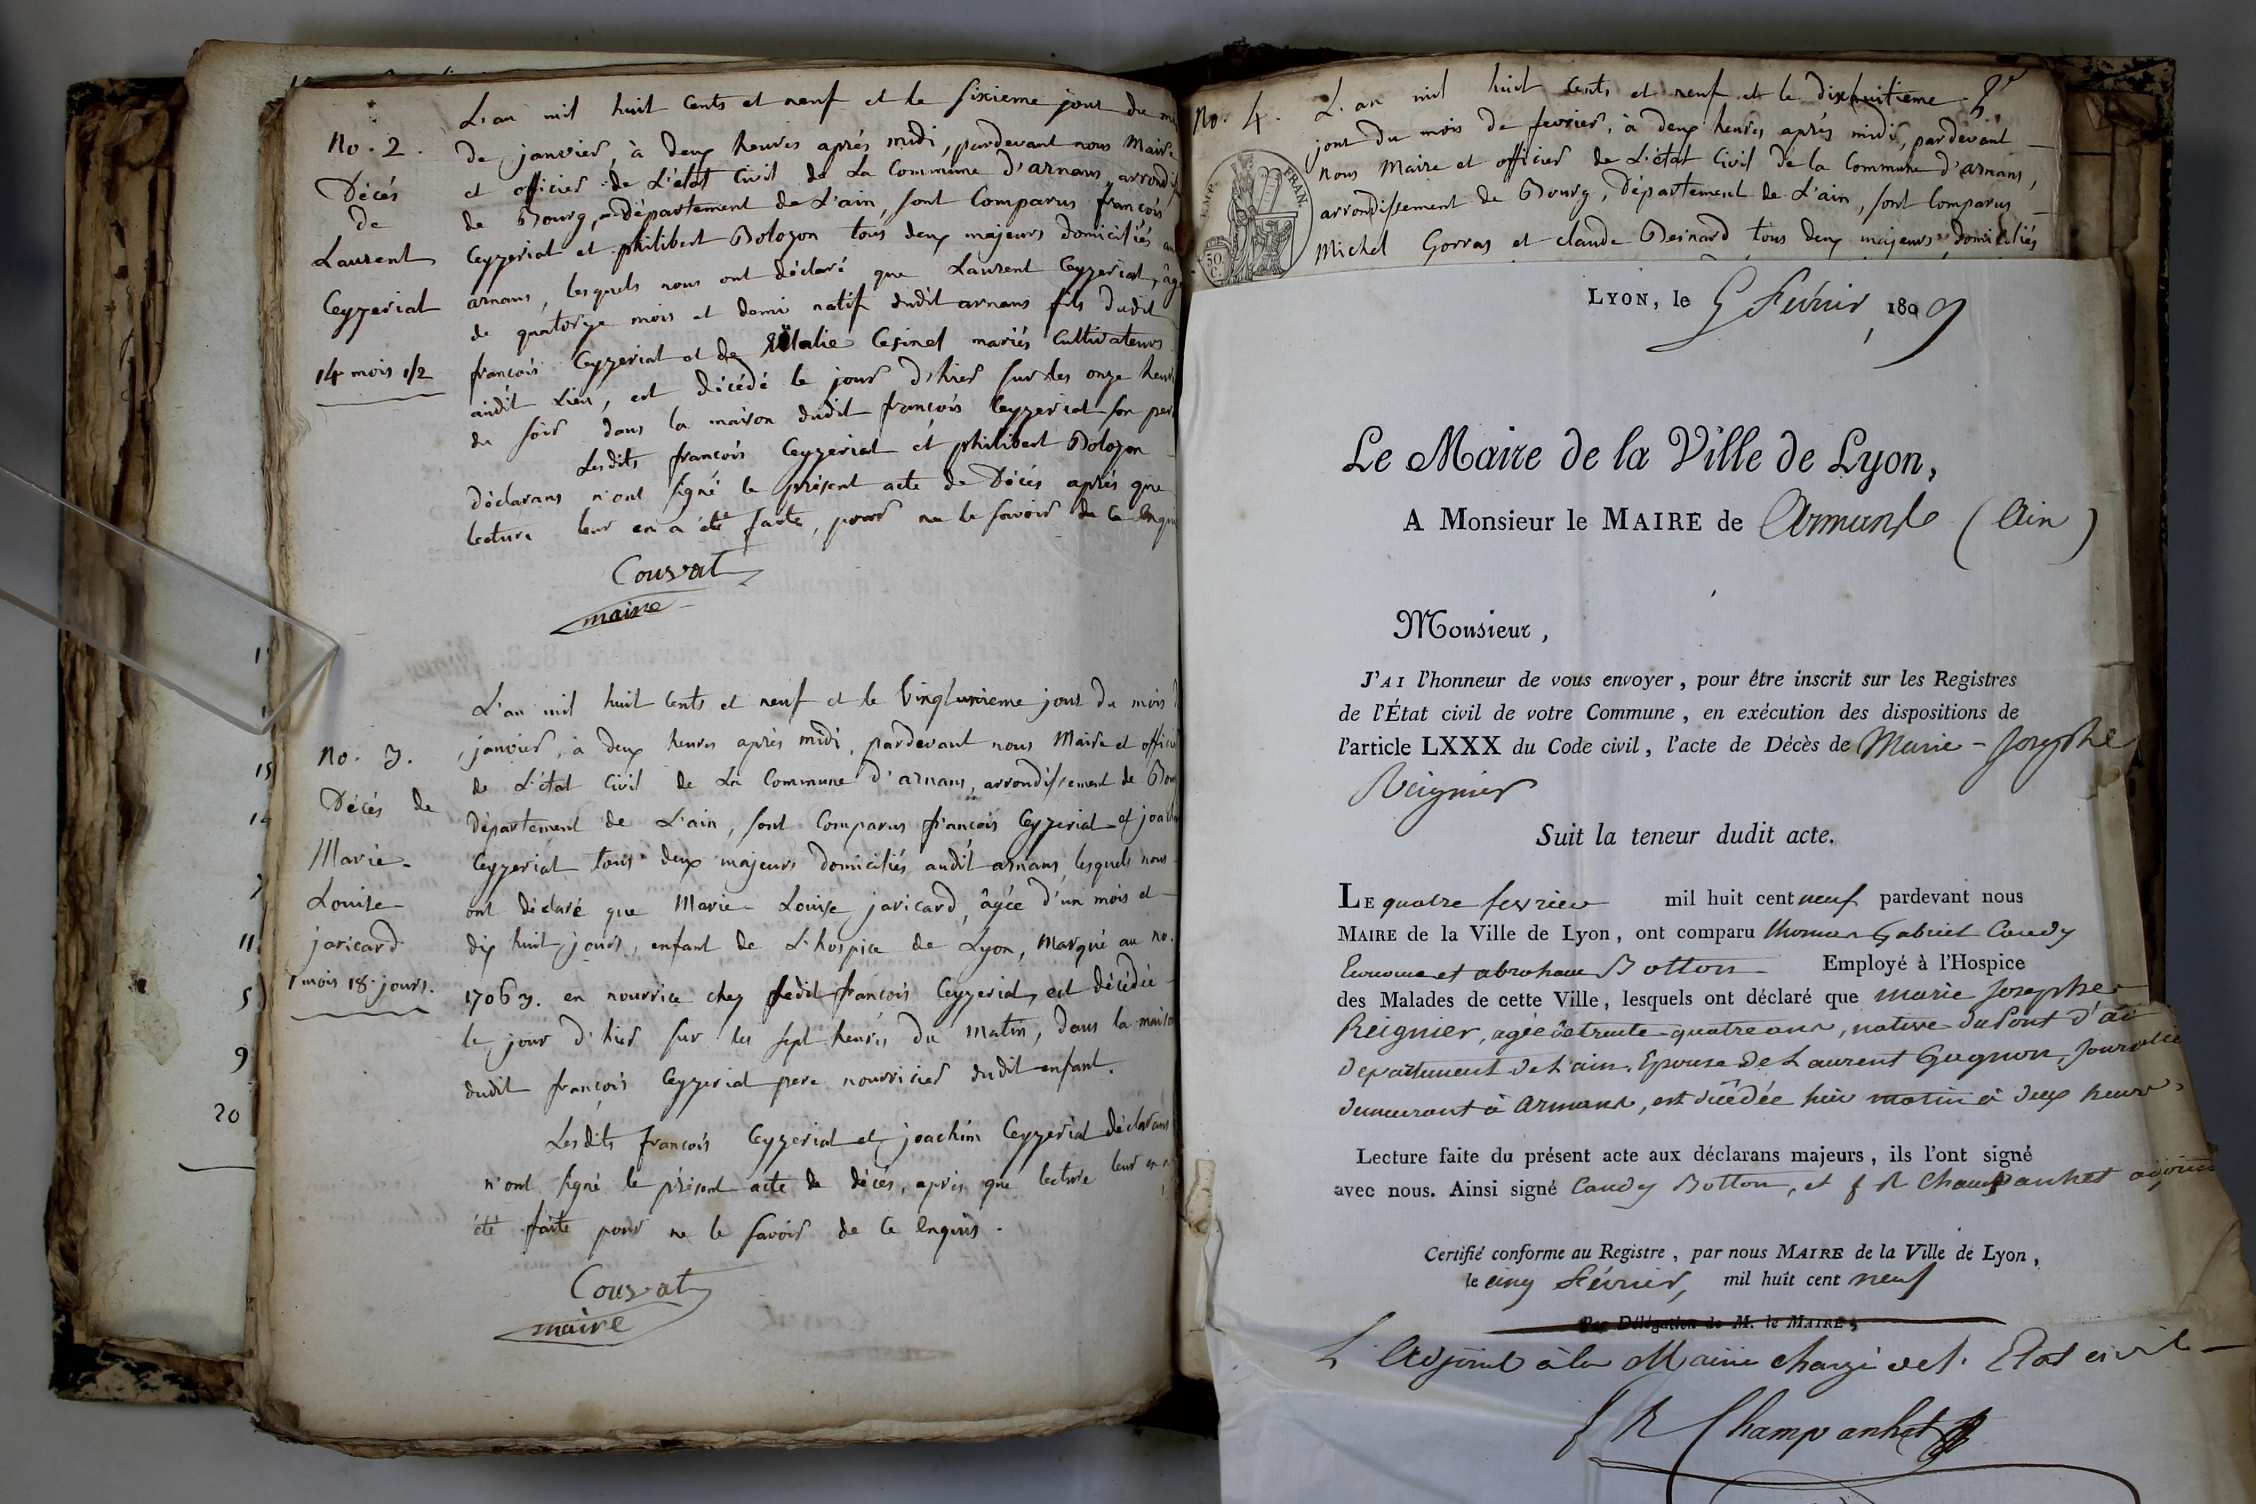 No. 2.
Décés
de
Laurent
Ceyzeriat
14 mois 1/2
L'an mil huit cents et neuf et le sixieme jour du
de janvier, à deux heures aprés midi, pardevant nous Maire
et officier de L'état Civil de La Commune d'arnans, arrondiss
de Bourg, département de L'ain, sont Comparus françois
Ceyzeriat et philibert Bolozon tous deux majeurs domiciliés
arnans, lesquels nous ont déclaré que Laurent Ceyzeriat, âg
de quatorze mois et demi natif dudit arnans fils dudit
françois Ceyzeriat et de Cesinet mariés Cultivateurs
audit Lieu, est décédé le jour d'hier sur les onze heures
du soir dans la maison dudit françois Ceyzeriat son pere
Lesdits françois Ceyzeriat et philibert Bolozon
déclarans n'ont signé le présent acte de Décés aprés que
lecture leur en a été faite, pour ne le savoir de ce enquis
Couvat
maire
No. 3.
Décés de
Marie-
Louise
jaricard
1 mois 18 jours.
L'an mil huit Cents et neuf et le Vingtunieme jour du mois
janvier, à deux heures aprés midi, pardevant nous Maire et officier
de L'état Civil de La Commune d'arnans, arrondissement de Bou
Département de L'ain, sont Comparus françois Ceyzeriat et joach
Ceyzeriat tous deux majeurs domiciliés audit arnans, lesquels nous
ont déclaré que Marie-Louise jaricard, âgée d'un mois et
dix huit jours, enfant de L'hospice de Lyon, Marqué au no.
17063. en nourrice chez ledit françois Ceyzeriat, est décédée
le jour d'hier sur les sept heures du matin, dans la maison
dudit françois Ceyzeriat pere nourricier dudit enfant.
Lesdits françois Ceyzeriat et joachim Ceyzeriat déclarans
n'ont signé le présent acte de décés, aprés que lecture leur en a
été faite pour ne le savoir de Ce enquis.
Couvat
maire
9
20
No. 4.
L'an mil huit Cents et neuf et le dixhuitieme
jour du mois de fevrier, à deux heures aprés midi, pardevant
nous Maire et officier de L'état Civil de la Commune d'arnans,
arrondissement de Bourg, Département de L'ain, sont Comparus
Michel Gorras et claude Besnard tous deux majeurs domiciliés
EMP. FRAN.
50 C.
LYON, le 5 Février 1809
Le Maire de la Ville de Lyon,
A Monsieur le MAIRE de Armans (Ain)
Monsieur,
J'AI l'honneur de vous envoyer, pour être inscrit sur les Registres
de l'État civil de votre Commune, en exécution des dispositions de
l'article LXXX du Code civil, l'acte de Décès de Marie-Josephe
Reignier
Suit la teneur dudit acte.
LE quatre fevrier mil huit cent neuf pardevant nous
MAIRE de la Ville de Lyon, ont comparu thomas Gabriel Caudy
Econome et abraham Botton Employé à l'Hospice
des Malades de cette Ville, lesquels ont déclaré que marie Josephe
Reignier, agée de trente quatre ans, native du Pont d'ain
departement de l'ain, Epouse de Laurent Gugnon, Journalier
demeurant à Armans, est décédée hier matin à deux heures
Lecture faite du présent acte aux déclarans majeurs, ils l'ont signé
avec nous. Ainsi signé Caudy Botton, et f R Champanhet adjoint
Certifié conforme au Registre, par nous MAIRE de la Ville de Lyon,
le cinq Février, mil huit cent neuf
Par Délégation de M. le MAIRE,
L'adjoint à la Mairie chargé de l'Etat civil
f R Champanhet